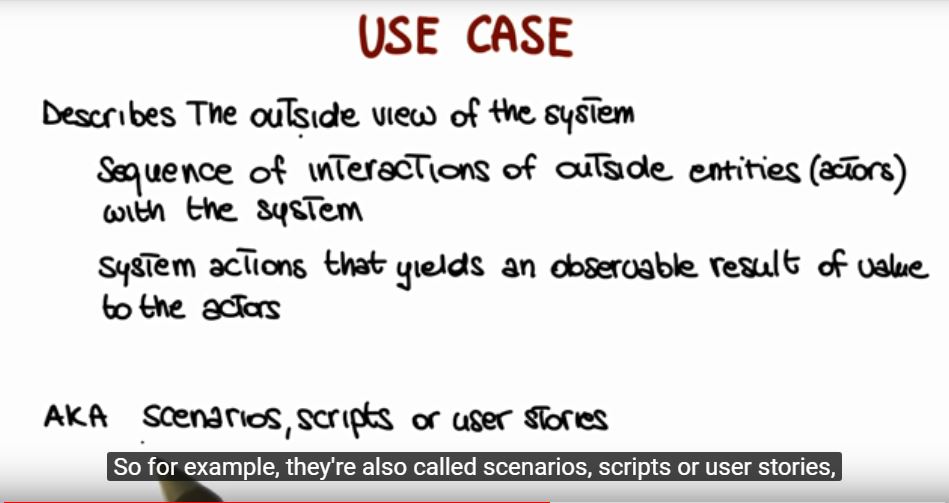 USE CASE
Describes The outside view of the system
Sequence of interactions of outside entities (actors)
with the system
System actions that yields an observable result of value
to the actors
AKA scenarios, scripts or user stories
So for example, they're also called scenarios, scripts or user stories,